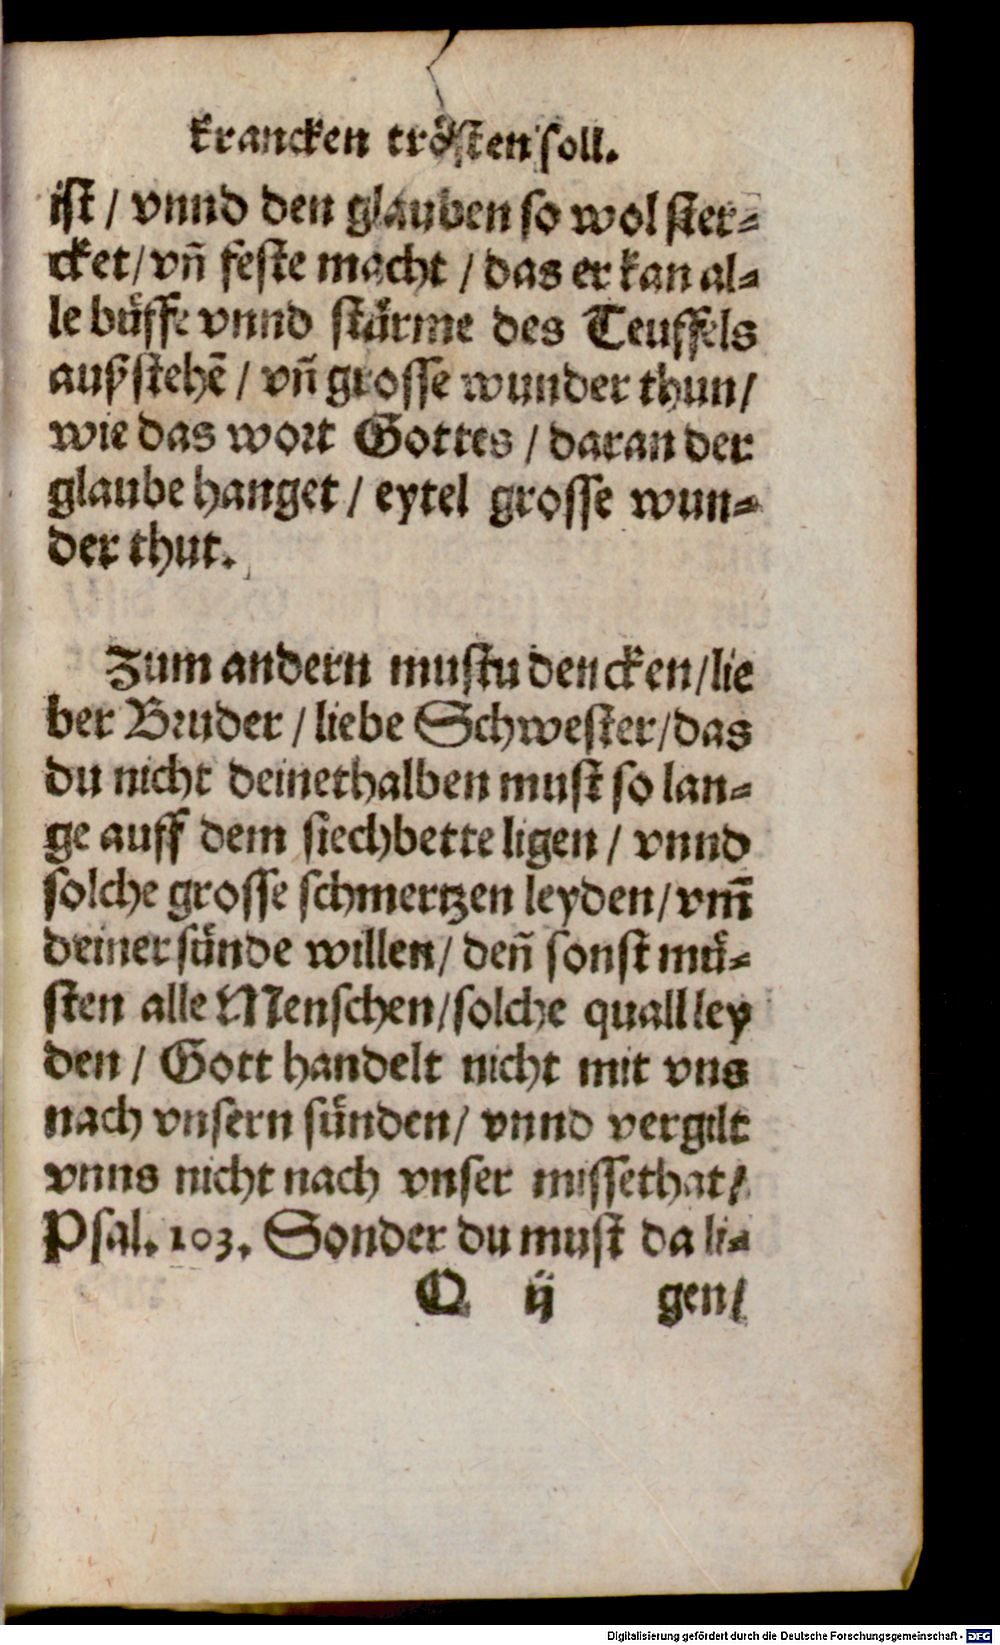 krancken trösten soll.
ist / vnnd den glauben so wol ster⸗
cket / vñ feste macht / das er kan al⸗
le büffe vnnd stürme des Teuffels
außstehẽ / vñ grosse wunder thun /
wie das wort Gottes / daran der
glaube hanget / eytel grosse wun⸗
der thut.
Zum andern mustu dencken / lie
ber Bruder / liebe Schwester / das
du nicht deinethalben must so lan⸗
ge auff dem siechbette ligen / vnnd
solche grosse schmertzen leyden / vm̃
deiner sünde willen / deñ sonst mü⸗
sten alle Menschen / solche quall ley
den / Gott handelt nicht mit vns
nach vnsern sünden / vnnd vergilt
vnns nicht nach vnser missethat /
Psal. 103. Sonder du must da li⸗
Q ij gen /
Digitalisierung gefördert durch die Deutsche Forschungsgemeinschaft - DFG